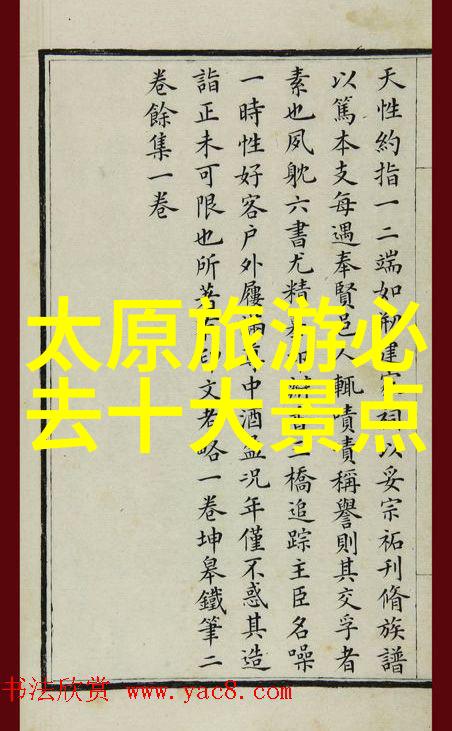 天性約指一二端如建宗祠以妥宗祏刊脩族譜
以篤本支每遇奉賢邑人輒嘖嘖稱譽則其交孚者
素也夙躭六書尤精橋追踪主臣名噪
一時性好客户外屨滿中酒盈况年僅不惑其造
詣正未可限也所著印文考略一卷坤皋鐵筆二
卷餘集一卷
太原旅游必
去十大景点
书法欣赏 www.yac8.com